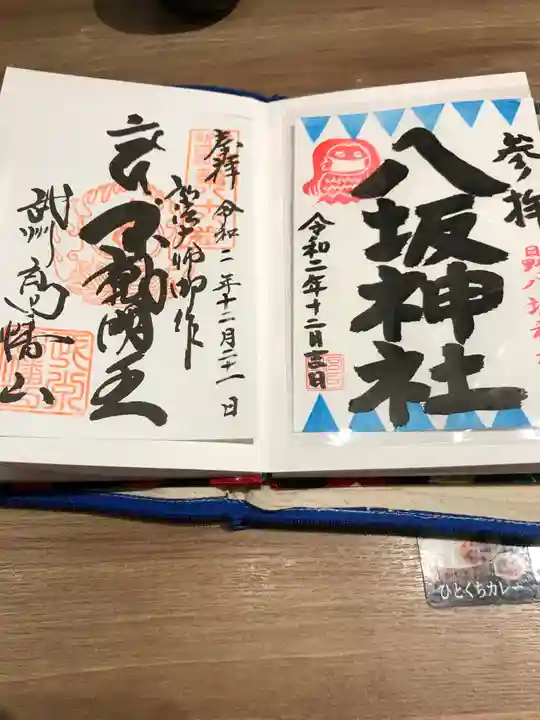 参拝
八坂神社
令和二年十二月二十三日
奉拝
令和二年十二月二十一日
弘法大師御作
不動明王
武州
高幡山
ひとくちカレー